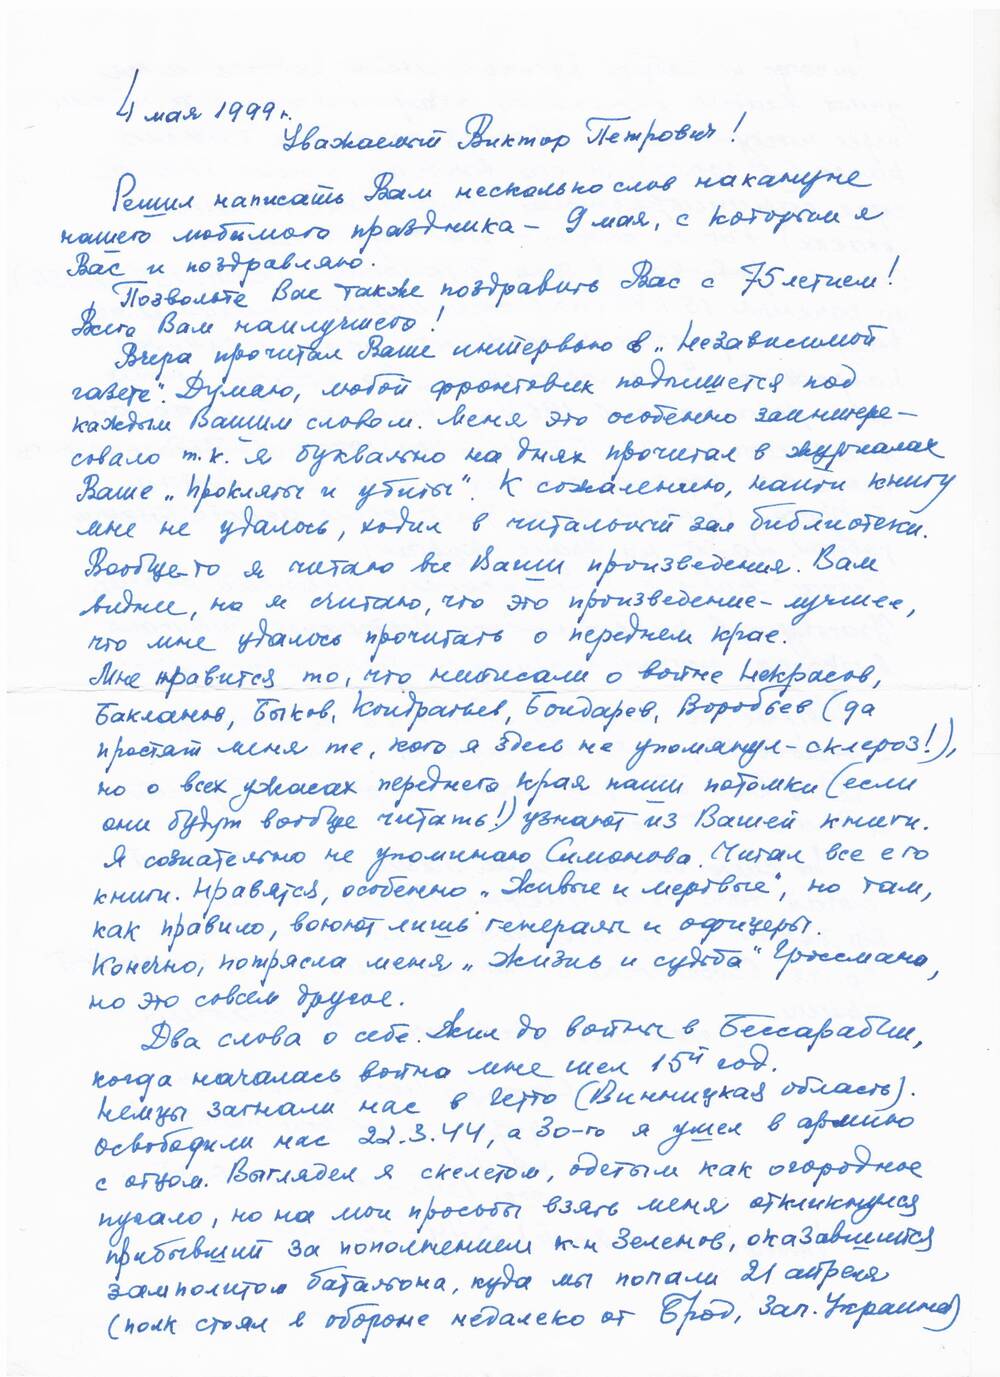 4 мая 1999 г.
Уважаемый Виктор Петрович!
Решил написать Вам несколько слов накануне
нашего любимого праздника – 9 мая, с которым я
Вас и поздравляю.
Позвольте Вас также поздравить Вас с 75 летием!
Всего Вам наилучшего!
Вчера прочитал Ваше интервью в „Независимой
газете“. Думаю, любой фронтовик подпишется под
каждым Вашим словом. Меня это особенно заинтере-
совало т.к. я буквально на днях прочитал в журналах
Ваше „Прокляты и убиты“. К сожалению, найти книгу
мне не удалось, ходил в читальный зал библиотеки.
Вообще-то я читаю все Ваши произведения. Вам
видней, но я считаю, что это произведение – лучшее,
что мне удалось прочитать о переднем крае.
Мне нравится то, что написали о войне Некрасов,
Бакланов, Быков, Кондратьев, Бондарев, Воробьев (да
простят меня те, кого я здесь не упомянул – склероз!),
но о всех ужасах переднего края наши потомки (если
они будут вообще читать!) узнают из Вашей книги.
Я сознательно не упоминаю Симонова. Читал все его
книги. Нравятся, особенно „Живые и мертвые“, но там,
как правило, воюют лишь генералы и офицеры.
Конечно, потрясла меня „Жизнь и судьба“ Гроссмана,
но это совсем другое.
Два слова о себе. Жил до войны в Бессарабии,
когда началась война мне шел 15й год.
Немцы загнали нас в гетто (Винницкая область).
Освободили нас 22.3.44, а 30-го я ушел в армию
с отцом. Выглядел я скелетом, одетым как огородное
пугало, но на мои просьбы взять меня откликнулся
прибывший за пополнением к-н Зеленов, оказавшийся
замполитом батальона, куда мы попали 21 апреля
(полк стоял в обороне недалеко от Брод, Зап. Украина)